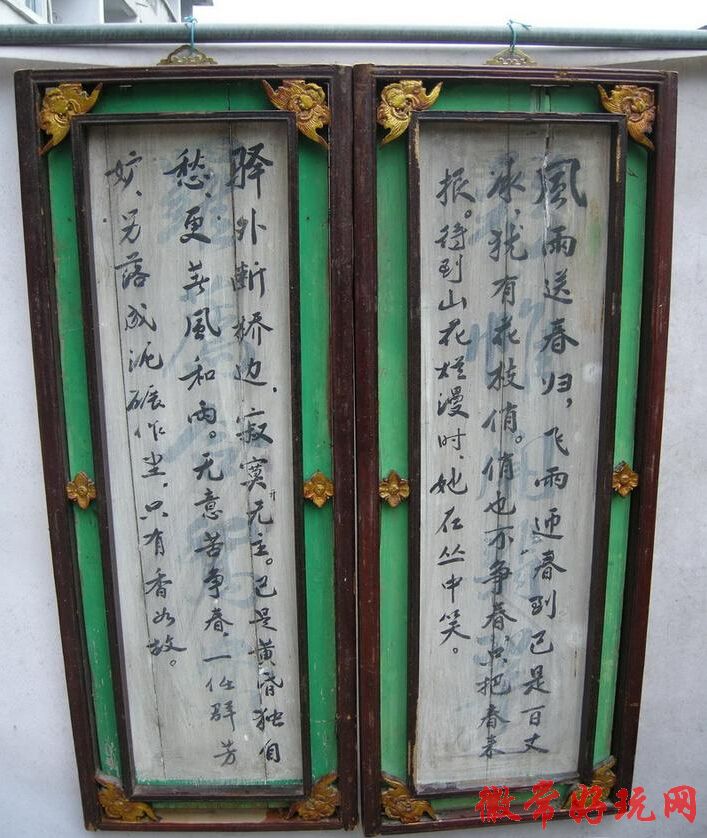 風雨送春归，飞雨迎春到已是百丈
冰，犹有花枝俏。俏也不争春，只把春来
报。待到山花烂漫时，她在丛中笑。
驿外断桥边，寂寞开无主。已是黄昏独自
愁，更着風和雨。无意苦争春，一任群芳
妒，另落成泥碾作尘，只有香如故。
徽常好玩网